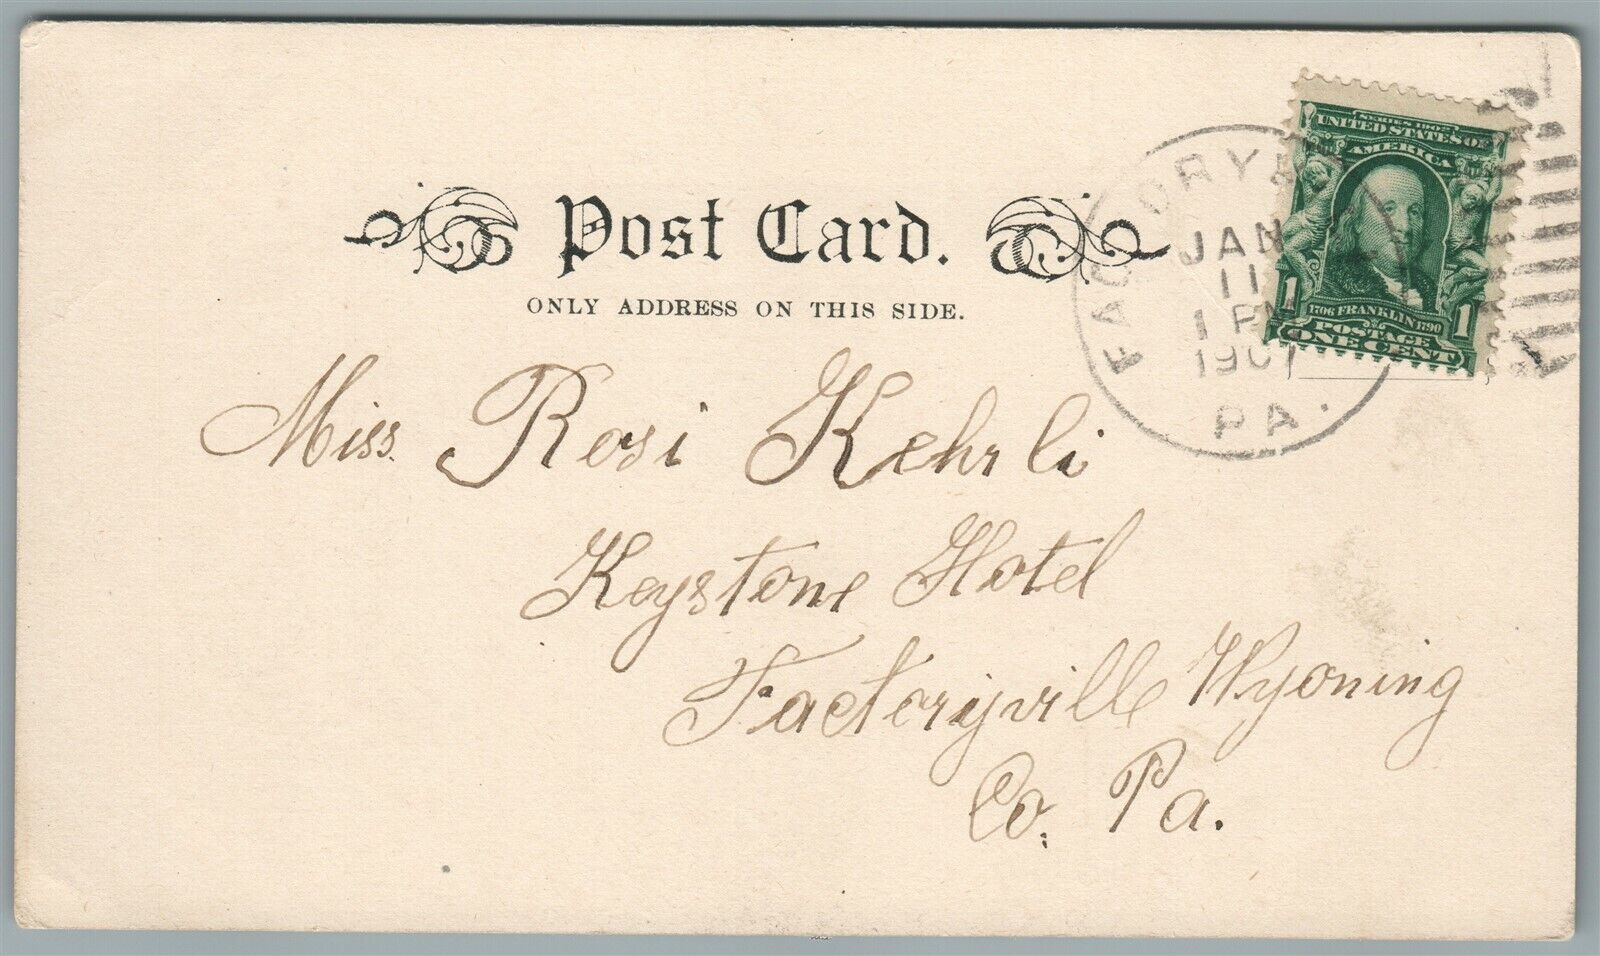 Post Card.
ONLY ADDRESS ON THIS SIDE.
SERIES 1902
UNITED STATES OF
AMERICA
1706 FRANKLIN 1790
1 POSTAGE 1
ONE CENT
JAN
11
1 PM
1907
PA.
Miss. Rosi Kehrli
Keystone Hotel
Factoryville Wyoming
Co. Pa.